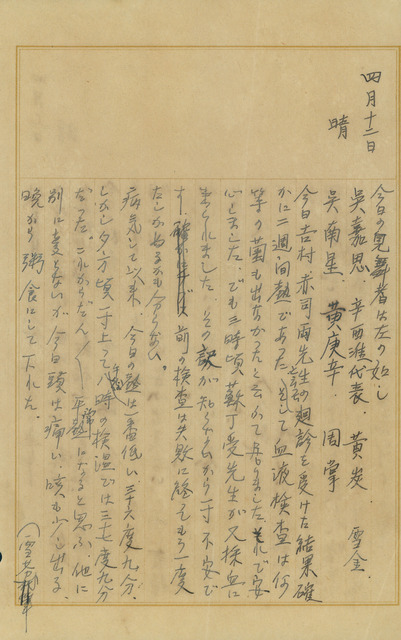 四月十二日
晴
今日の見舞者は左の如し
吳嘉思. 辛酉準代表. 黄炭. 雪金.
吳南星. 黄庚辛. 周掌
今日吉村 赤司両先生の廻診を受けた結果確
かに二週間熱であったそして血液検査は何
等の菌も出なかったと云われて居りましたそれで安
心しました.でも三時頃蘇丁受先生が又採血に
来られました その訳が知らないから一寸不安で
す. 前の検査は失敗に終ってもう一度
たしかめるかも知らない。
病気して以来. 今日の熱は一番低い三十六度九分.
しかし夕方頃一寸上って八時の検温では三七度九分
だった.これからだん〱平熱になると思ふ.他に
別に変りないが今日頭は痛い.咳も少し出る.
晩から粥食にして下れた。